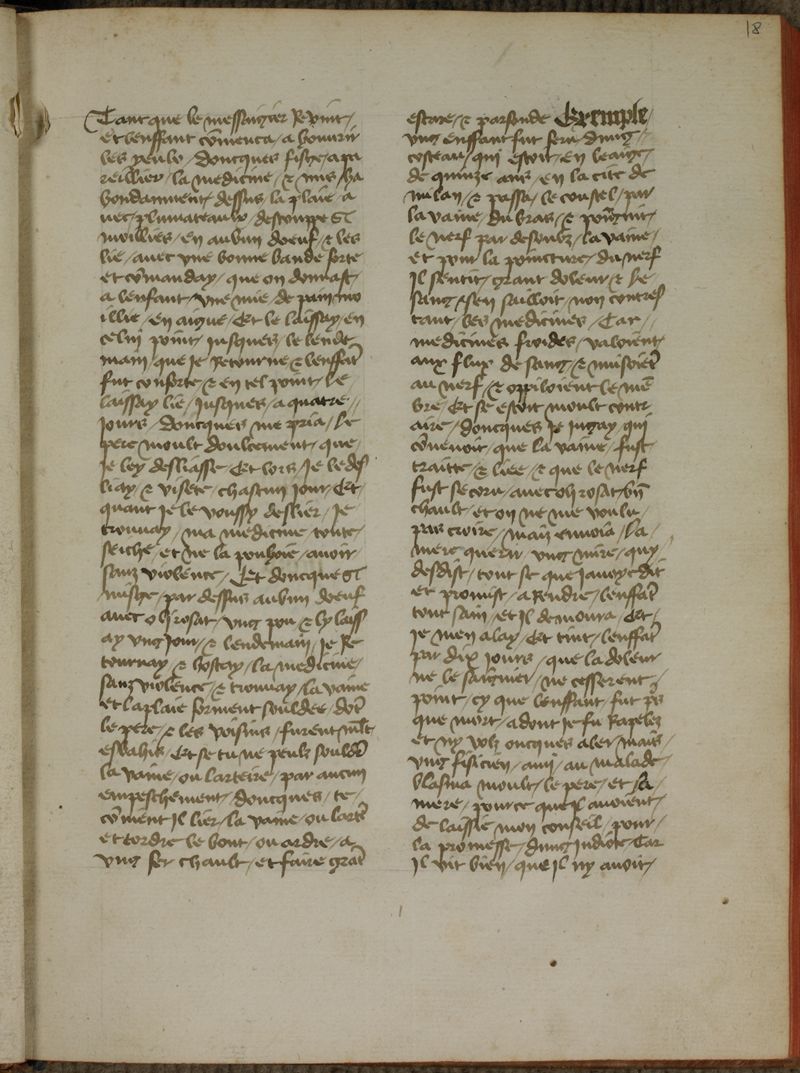 18
Tant que le messaigier revint /
et lenffant cōmenca / a houurir
les yeulx / doncques fis ge / apa
reillier / la medicine / & mis / ha
bondamment / dessus / la plaie / a
uec / plumateaulx / destouppe Et
moilliés / en aubun doeuf / & les
lié / auec vne bonne bande forte
et cōmanday / que on donnast /
a lenfant / vne mie / de pain / mo
illie / en aigue / Et le laissay / en
celui point / jusques / le lende
main / que je retourne & lenffāt
fut conforté / & en tel point / le
laissay lié / jusques / a quatre //
jours / doncques me pria / le
pere moult doulcement / que /
je ley desliasse Et lors / je le des
liay / & visete / chascun jour / Et /
quant je le voussy deslier / je
trouuay / ma medicine / toute /
seiche / et ne la pouhoie / auoir
sanz violence / Et doncques Et
mis ge / par dessus aubun doeuf
auec oli rosat / vng pou / & ly laiss
ay vng jour / & lendemain / je re
tournay / & hostay / la medicine /
sanz violence / & trouuay / la vaine
et la plaie forment souldee / dōt
le pere / & les voisins / furent mlt
esbahis / Et se tu ne peulz souldē
la vaine / ou larteire / par aucun
empeschement / doncques / te /
cōment il lier / la vaine / ou lartē
et tordre le bout / ou ardre / a
vng fer chault / et faire grāt
estare / & parfonde Exemple /
vng enffant fut feru / dung /
costeau / qui estoit / en leauge /
de quinze ans / en la cite de
milan / & passa / le coustel / par
la vaine / du bras / & poingnit /
le nerf par desoubz / la vaine /
et pour la poincture / du nerf
Il sentit / grant doleur & le
sang / sen sailloit / non contres
tant / les medicines / Car //
medicines froides / valoient
aux flux de sang / & nuisoiēt
au nerf / & oppiloient le mē
bre / Et se estoit moult contr
aire / doncques je jugay / qui
cōuenoit / que la vaine / fust
traitte / & liee / & que le nerf
fust secoru / auec oli rosat / bñ
chault / et on ne me voulu /
pas croire / mais enuoia / la /
mere querir / vng mire / quy /
desdist / tout se que jauoye dit
et promist / a rendre / lenffāt
tout sain / et il demoura / Et /
je men alay / Et tint / lenffāt
par dix jours / que la doleur
ne le saigner / ne cesserent /
point / cy que lenffant / fut ps
que mort / adont je fu rapelez
et ny volz oncques aler / mais /
vng fisicien / ami / au malade /
blasma moult / le pere / et sa /
mere / pource que il auoient /
de laissie mon conseil / pour /
la promesse / dung indiote / Car
Il vit bien / que il ny auoit /